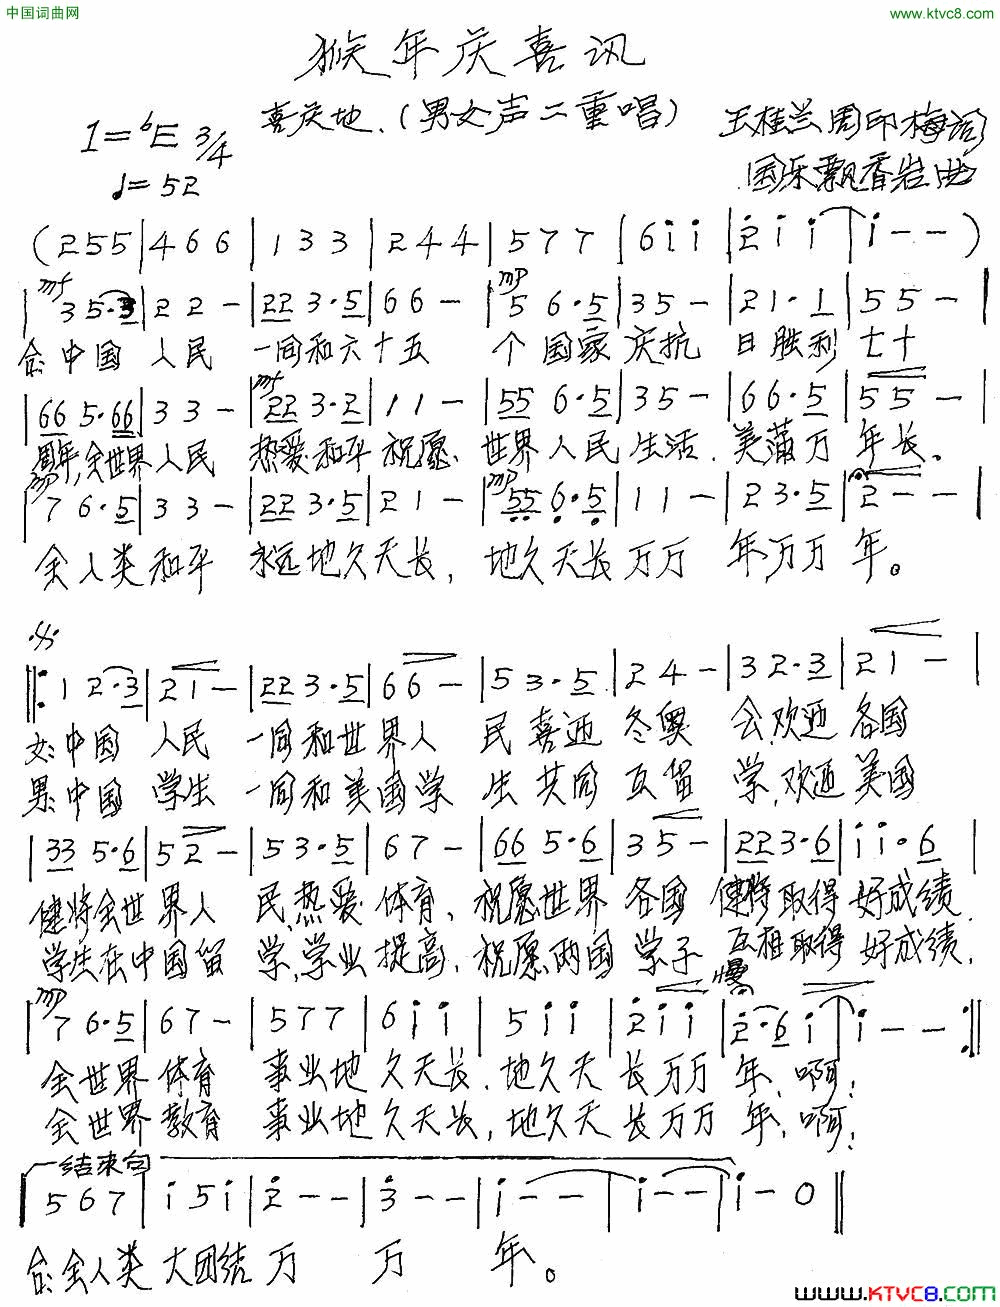 中国词曲网
www.ktvc8.com
猴年庆喜讯
1=bE 3/4
喜庆地.(男女声二重唱)
王桂兰周印梅词
♩=52
国乐飘香岩曲
(255|466|133|244|577|6i̇i̇|2̇i̇i̇|i̇--)
mf mp
|35·3|22-|22 3·5|66-|56·5|35-|21·1|55-|
合:中国 人民 一同和六十五 个国家庆抗 日胜利七十
mf
|66 5·66|33-|22 3·2|11-|55 6·5|35-|66·5|55-|
周年,全世界人民 热爱和平祝愿. 世界人民生活.美满万年长。
mp mp
|76·5|33-|22 3·5|21-|55 6·5|11-|23·5|2--|
全人类和平 永远地久天长, 地久天长万万年,万万年。
|:12·3|21-|22 3·5|66-|53·5|24-|32·3|21-|
女:中国 人民 一同和世界人 民喜迎冬奥 会,欢迎各国
男:中国 学生 一同和美国学 生共同互留 学,欢迎美国
|33 5·6|52-|53·5|67-|66 5·6|35-|22 3·6|i̇i̇·6|
健将全世界人 民,热爱体育,祝愿世界各国健将取得好成绩.
学生在中国留 学,学业提高.祝愿两国学子互相取得好成绩.
mp 慢
|76·5|67-|577|6i̇i̇|5i̇i̇|2̇i̇i̇|2̇·6i̇|i̇--:||
全世界体育 事业地久天长.地久天长万万年,啊;
全世界教育 事业地久天长,地久天长万万年,啊;
结束句
|567|i̇5i̇|2̇--|3̇--|i̇--|i̇--|i̇-0||
合:全人类大团结万 万 年。
www.KTVC8.com